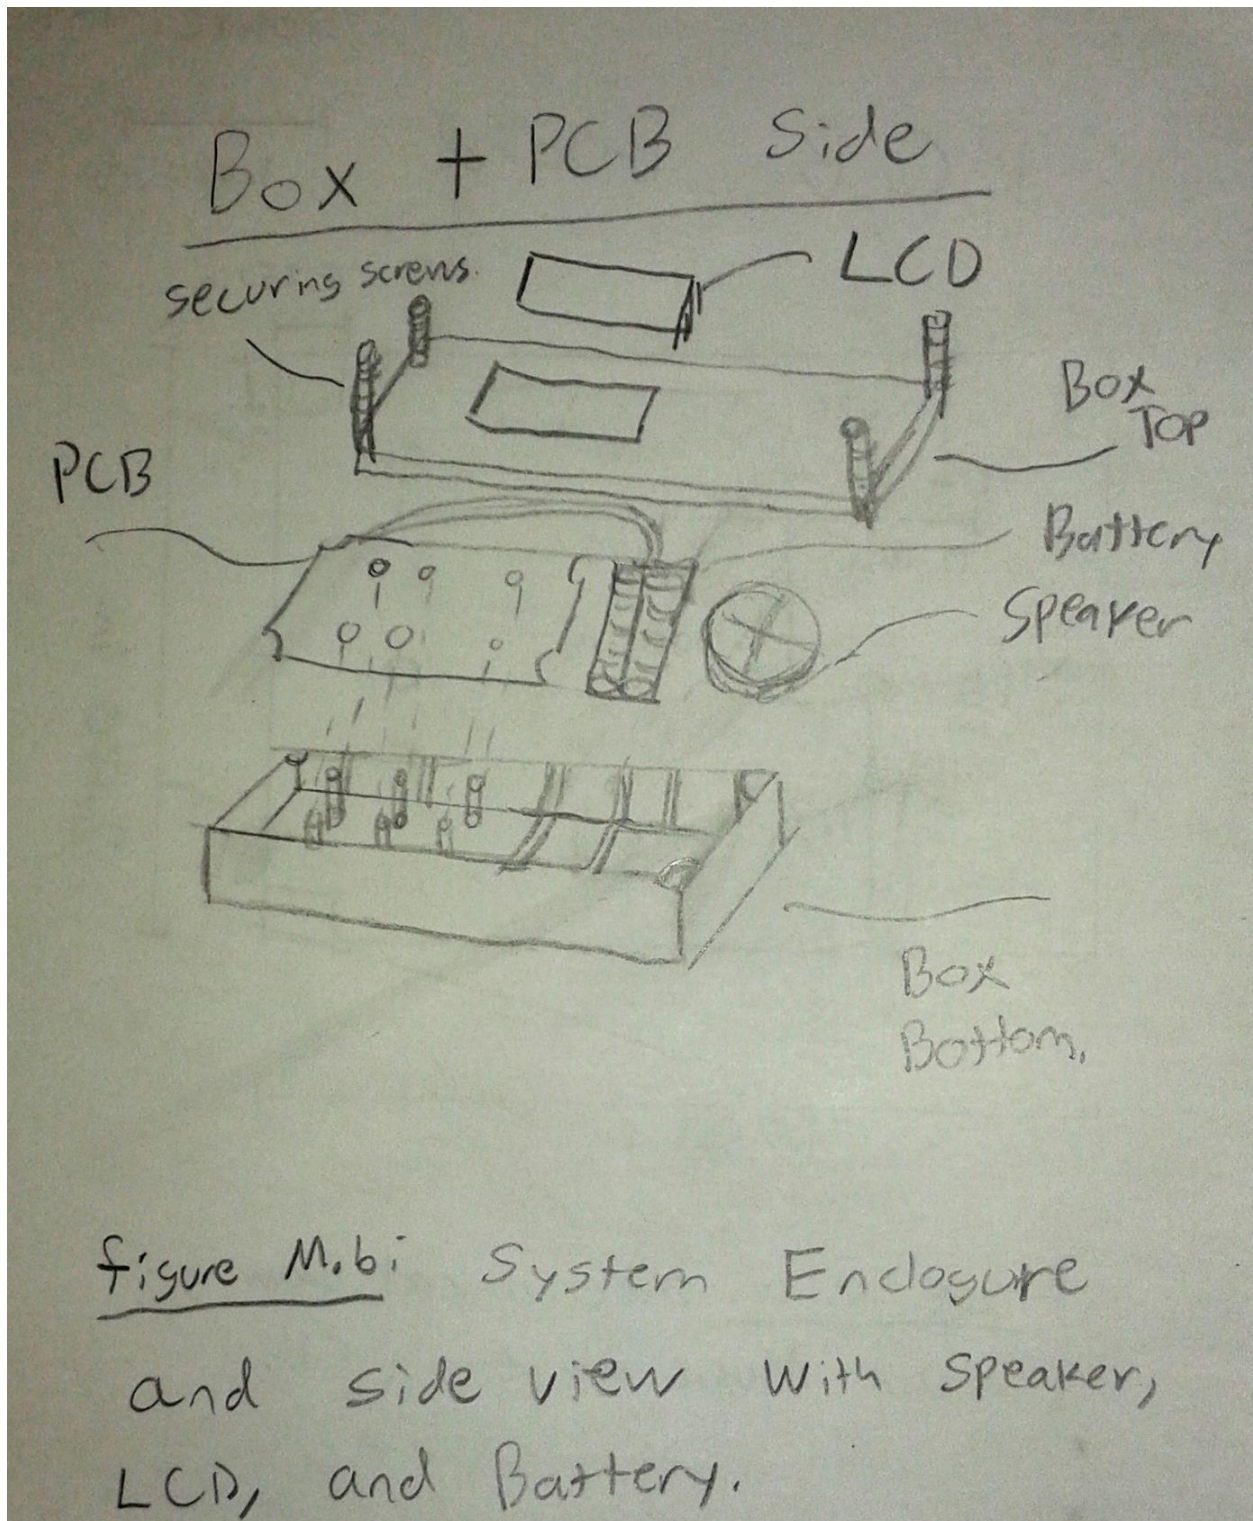 Box + PCB Side
securing screws.
LCD
Box
Top
PCB
Battery
Speaker
Box
Bottom.
figure M.b: System Enclosure
and side view with speaker,
LCD, and Battery.